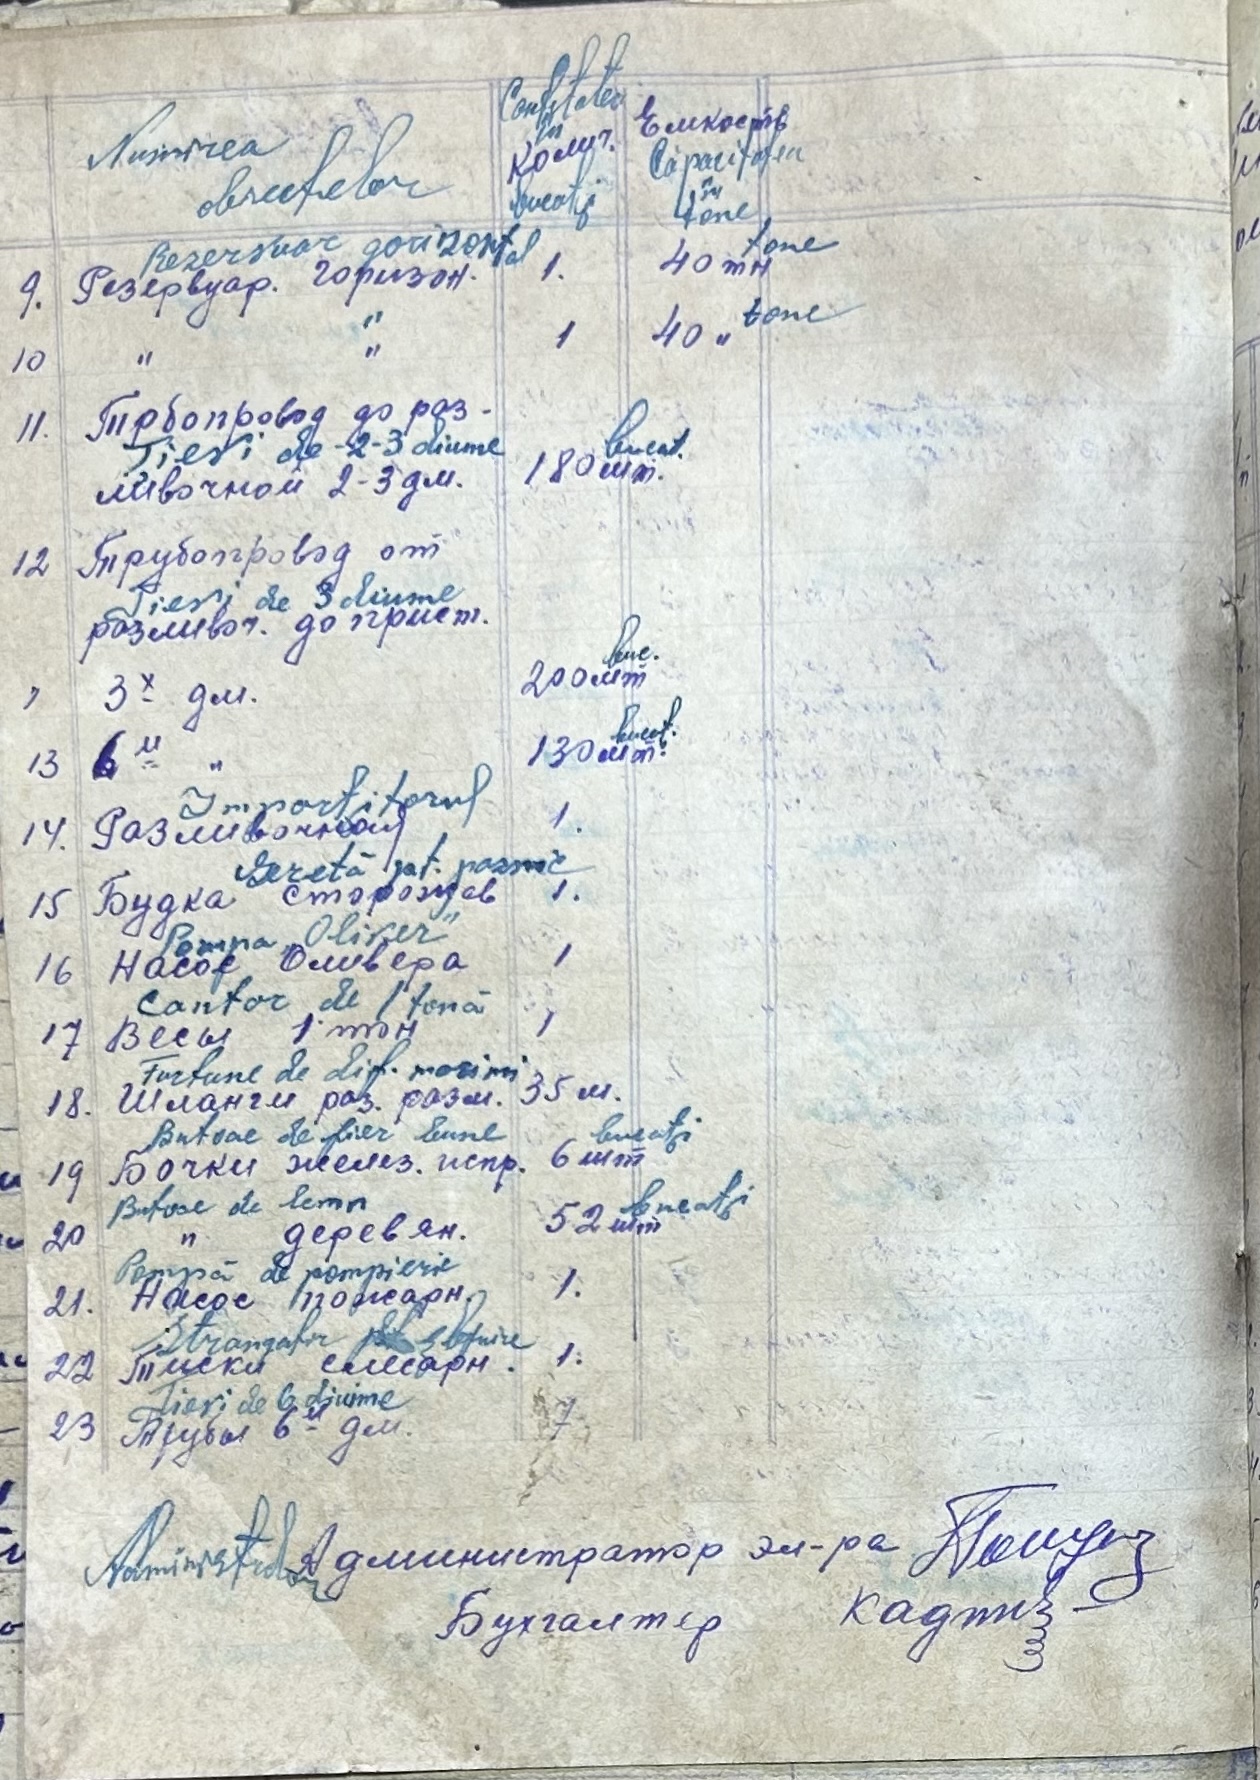 Numirea
obiectelor
Constatat
în
Колич.
bucăți
Емкость
Capacitatea
în
tone
Rezervuar gorizontal
tone
9. Резервуар. горизон. 1. 40 тн
" tone
10 " " 1 40 "
11. Трбопровод до раз-
Țievi de 2-3 diume bucat.
ливочной 2-3 дм. 180 шт.
12 Трубопровод от
Țievi de 3 diume
разливоч. до прист.
buc.
" 3х дм. 200 шт
bucat.
13 6и " 130 шт.
Împărțitorul
14. Разливочная 1.
Geretă pt. paznic
15 Будка сторожев 1.
Pompa „Oliver"
16 Насос Оливера 1
Cantar de 1 tonă
17 Весы 1 тон 1
Furtune de dif. marimi
18. Шланги раз. разм. 35 м.
Butoae de fier bune bucăți
19 Бочки желез. испр. 6 шт
Butoae de lemn bucăți
20 " деревян. 52 шт
Pompă de pompierie
21. Насос пожарн. 1.
22 Тиски слесарн. 1.
Țievi de 6 diuime
23 Трубы 6и дм. 7
Administrator
Администратор эл-ра
Бухгалтер